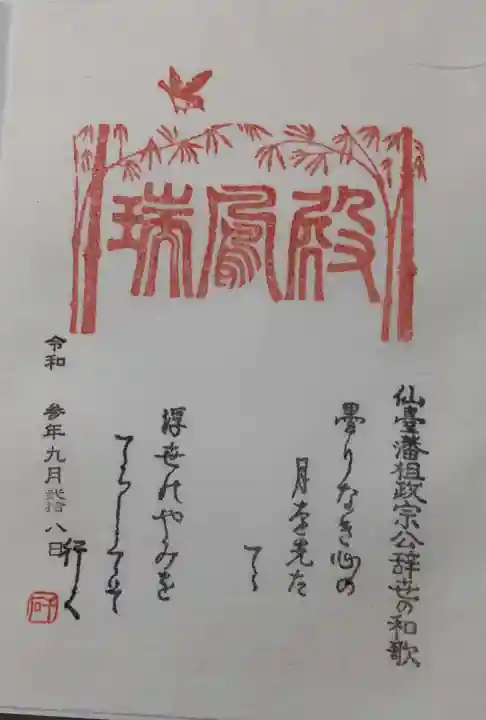 瑞鳳殿
仙臺藩祖政宗公辞世の和歌
曇りなき心の
月を先た
てゝ
浮世のやみを
てらしてそ
行く
令和 参年九月弐拾八日